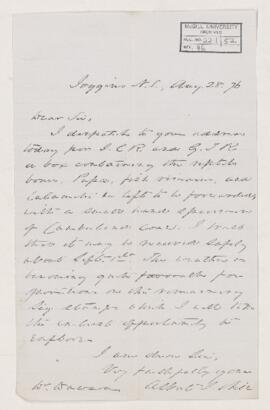 McGILL UNIVERSITY
ARCHIVES
ACC. NO. 22 / 52
REF. 46
Joggins N.S., Aug 28. '76
Dear Sir,
I despatch to your address
today per I.C.R. and G.T.R.
a box containing the reptile
bones, Pupa, fish remains, and
left to be forwarded,
with a small hand specimen
of cone. I trust
this it may be received safely
about Septr. 1st. The weather is
becoming quite favourable for
operations on the remaining
Sig. stumps which I will take
the earliest opportunity to
explore.
I am dear Sir,
Very faithfully yours
Dr. Dawson Albert J. Hill